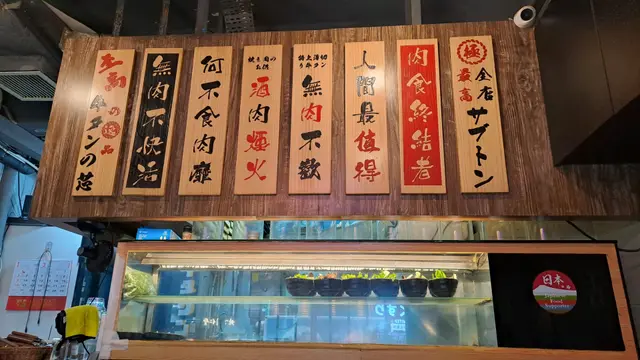 至高の逸品
牛タンの芯
無肉不快活
何不食肉靡
焼き肉の
お供
酒肉煙火
特上厚切
り牛タン
無肉不歡
人間最值得
肉食終結者
極
最高
全店サブトン
日本
Food
Supporter